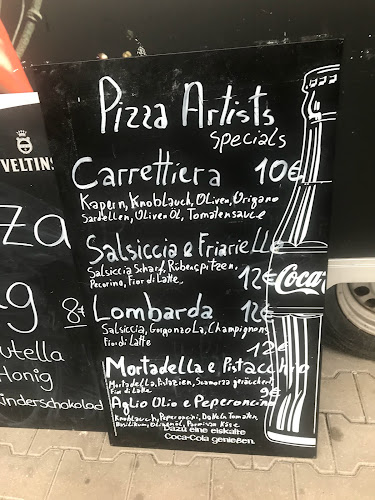 Pizza Artists
Specials
Carrettiera 10€
Kapern, Knoblauch, Oliven, Origano
Sardellen, Oliven Öl, Tomatensauce
Salsiccia e Friarielle
Salsiccia Scharf, Rübenspitzen,
Pecorino, Fior di Latte 12€
Lombarda 12€
Salsiccia, Gorgonzola, Champignons
Fior di Latte
12€
Mortadella e Pistacchio
Mortadella, Pistazien, Scamorza geräuchert,
Fior di Latte
9€
Aglio Olio e Peperoncino
Knoblauch, Peperoncini, Datteln Tomaten
Basilikum, Olivenöl, Parmesan Käse
Dazu eine eiskalte
Coca-Cola genießen.
Coca
VELTINS
za
g
8€
utella
Honig
Kinderschokolad